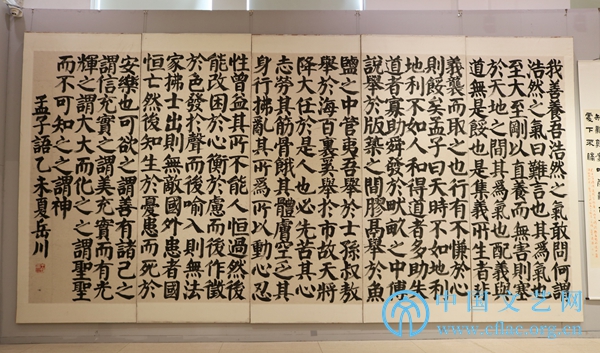 我善養吾浩然之氣敢問何謂
浩然之氣曰難言也其爲氣也
至大至剛以直養而無害則塞
於天地之間其爲氣也配義與
道無是餒也是集義所生者非
義襲而取之也行有不慊於心
則餒矣孟子曰天時不如地利
地利不如人和得道者多助失
道者寡助舜發於畎畝之中傅
說舉於版築之間膠鬲舉於魚
鹽之中管夷吾舉於士孫叔敖
舉於海百里奚舉於市故天將
降大任於是人也必先苦其心
志勞其筋骨餓其體膚空乏其
身行拂亂其所爲所以動心忍
性曾益其所不能人恒過然後
能改困於心衡於慮而後作徵
於色發於聲而後喻入則無法
家拂士出則無敵國外患者國
恒亡然後知生於憂患而死於
安樂也可欲之謂善有諸己之
謂信充實之謂美充實而有光
輝之謂大大而化之之謂聖聖
而不可知之之謂神
孟子語乙未夏岳川
中国文艺网
www.cflac.org.cn